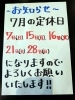 ～お知らせ～
7月の定休日
7(火) 15(水) 16(木)
21(火) 28(火)
になりますので
よろしくお願い
いたします!!